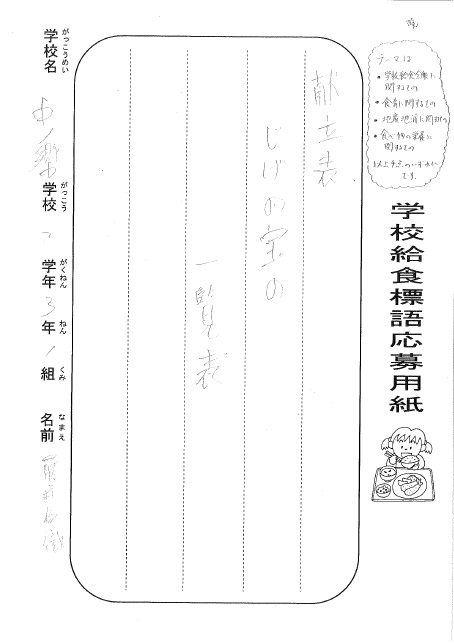 テーマは
・学校給食全般に
関するもの
・食育に関するもの
・地産地消に関するもの
・食べ物の栄養に
関するもの
以上4点のいずれかに
です。
学校給食標語応募用紙
献立表
じげの宝の
一覧表
がっこうめい
学校名
がっこう
学校
がくねん ねん くみ
学年 3年 1組
なまえ
名前